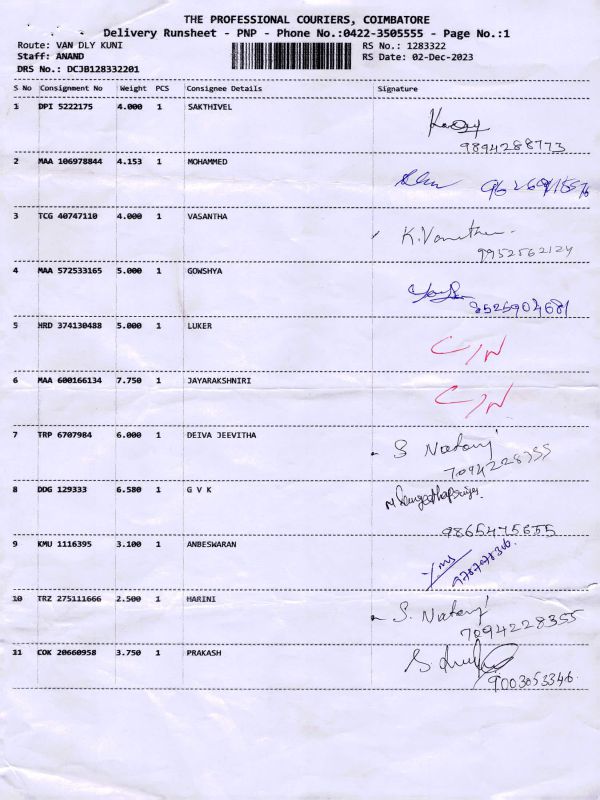 THE PROFESSIONAL COURIERS, COIMBATORE
Delivery Runsheet - PNP - Phone No.:0422-3505555 - Page No.:1
Route: VAN DLY KUNI RS No.: 1283322
Staff: ANAND RS Date: 02-Dec-2023
DRS No.: DCJB128332201
S No Consignment No Weight PCS Consignee Details Signature
1 DPI 5222175 4.000 1 SAKTHIVEL
9894288773
2 MAA 106978844 4.153 1 MOHAMMED
3 TCG 40747110 4.000 1 VASANTHA
K.Vanitha
9952562124
4 MAA 572533165 5.000 1 GOWSHYA
8525904681
5 HRD 374130488 5.000 1 LUKER
C/N
6 MAA 600166134 7.750 1 JAYARAKSHNIRI
C/N
7 TRP 6707984 6.000 1 DEIVA JEEVITHA
S Nataraj
7094228355
8 DDG 129333 6.580 1 G V K
9865475655
9 KMU 1116395 3.100 1 ANBESWARAN
9787078306
10 TRZ 275111666 2.500 1 HARINI
S. Nataraj
7094228355
11 COK 20660958 3.750 1 PRAKASH
9003053346